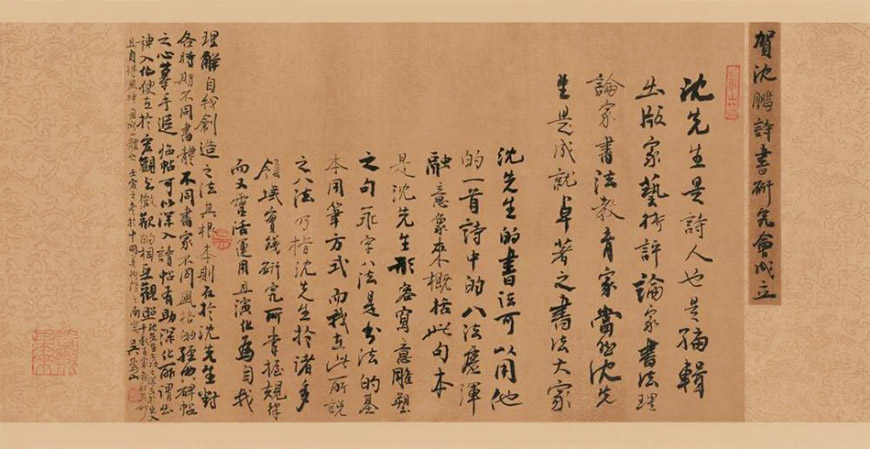 賀沈鵬詩書研究會成立
沈先生是詩人也是編輯
出版家藝術評論家書法理
論家書法教育家當然沈先
生是成就卓著之書法大家
沈先生的書法可以用他
的一首詩中的八法
融意象來概括此句本
是沈先生形容寫意雕塑
之句永字八法是書法的基
本用筆方式而我在此所說
之八法乃指沈先生於諸多
領域實踐研究所掌握規律
而又靈活運用且演化為自我
理解自我創造之法其根本則在於沈先生對
各時期不同書體不同書家不同風格的經典碑帖
之心摹手追臨帖可以深入讀帖有助深化所謂出
神入化便在於宏觀與微